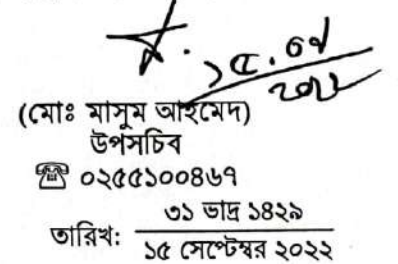 ১৫.০৯
২০২২
(মোঃ মাসুম আহমেদ)
উপসচিব
☎ ০২৫৫১০০৪৬৭
৩১ ভাদ্র ১৪২৯
তারিখ:
১৫ সেপ্টেম্বর ২০২২